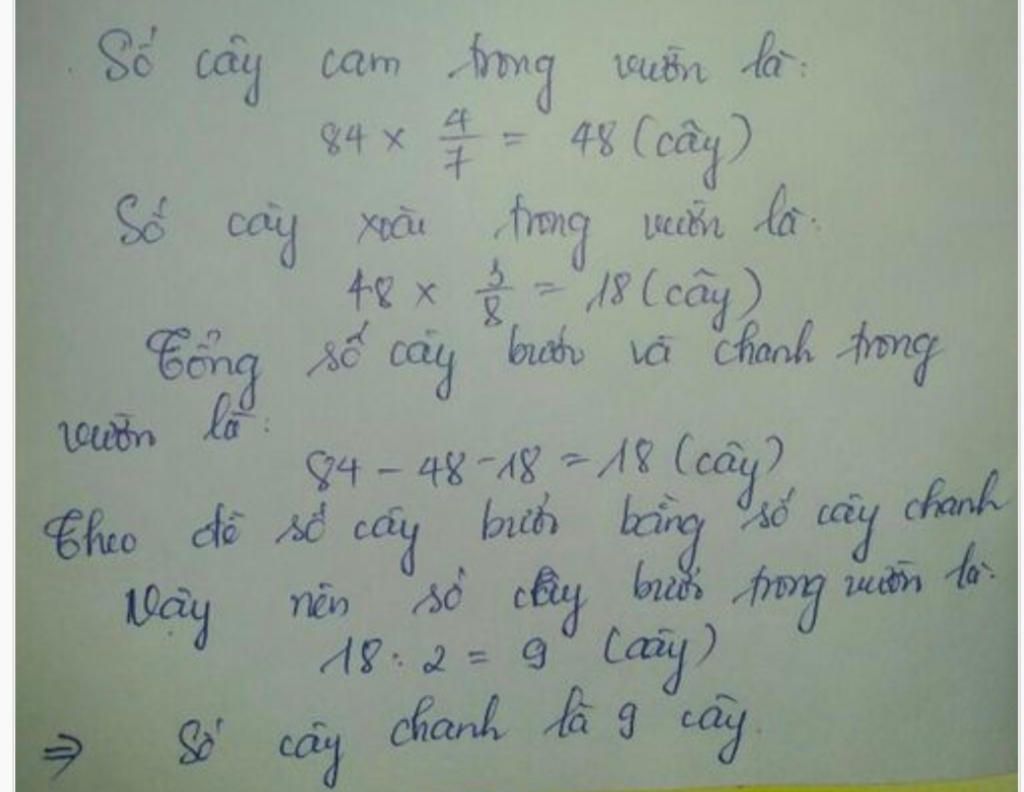 Số cây cam trong vườn là:
84 × 4/7 = 48 (cây)
Số cây xoài trong vườn là:
48 × 3/8 = 18 (cây)
Tổng số cây bưởi và chanh trong
vườn là:
84 - 48 - 18 = 18 (cây)
Theo đề số cây bưởi bằng số cây chanh
Vậy nên số cây bưởi trong vườn là:
18 : 2 = 9 (cây)
⇒ Số cây chanh là 9 cây.